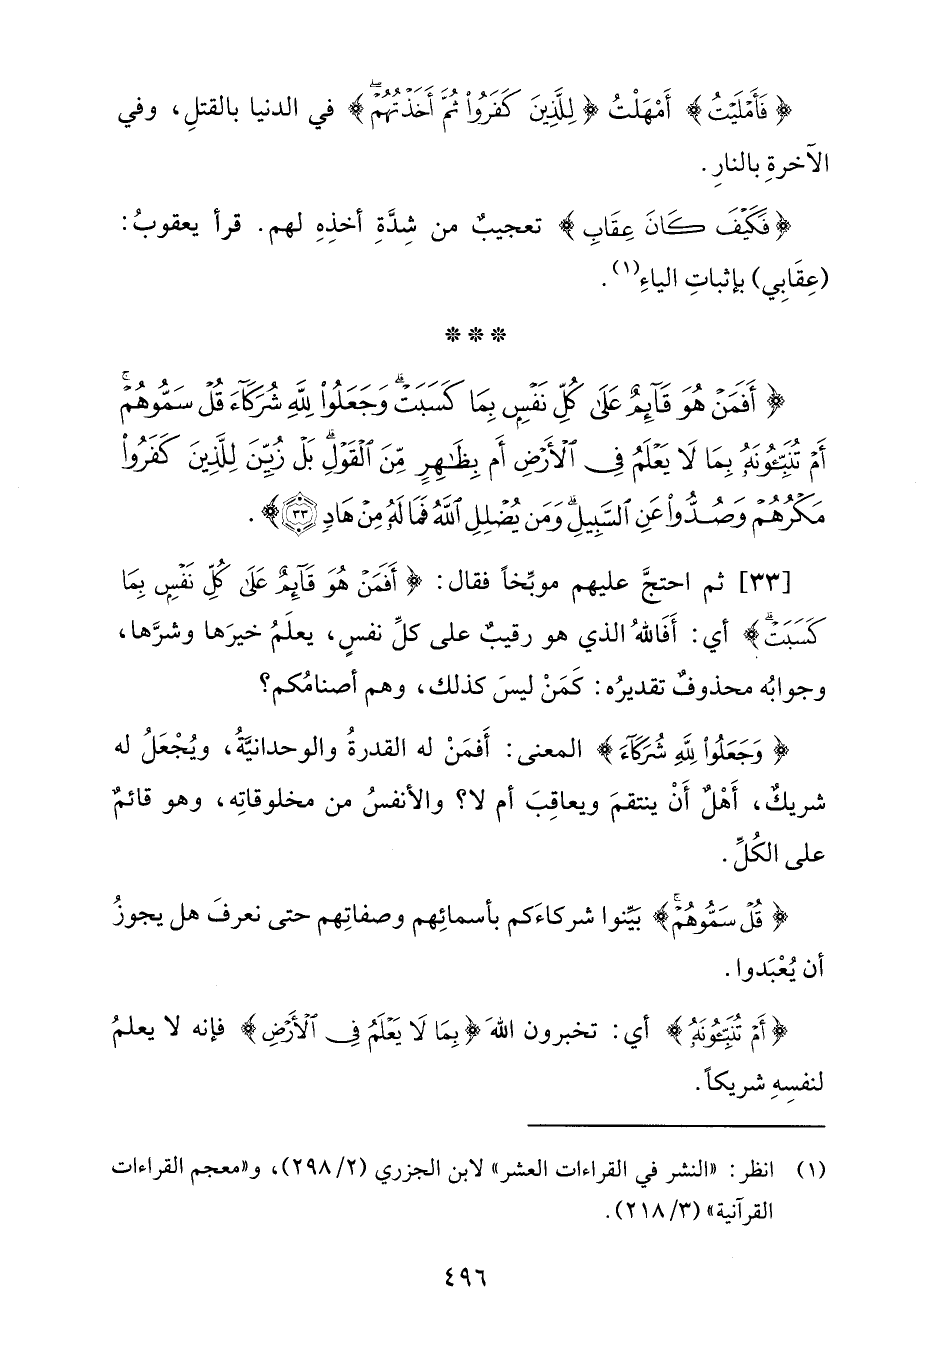 ﴿فَأَمْلَيْتُ﴾ أَمْهَلْتُ ﴿لِلَّذِينَ كَفَرُوا۟ ثُمَّ أَخَذْتُهُمْ ۖ﴾ في الدنيا بالقتلِ، وفي
الآخرةِ بالنارِ.
﴿فَكَيْفَ كَانَ عِقَابِ﴾ تعجيبٌ من شِدَّةِ أخذِهِ لهم. قرأ يعقوبُ:
(عِقَابِي) بإثباتِ الياءِ(١).
* * *
﴿أَفَمَنْ هُوَ قَآئِمٌ عَلَىٰ كُلِّ نَفْسٍۭ بِمَا كَسَبَتْ ۗ وَجَعَلُوا۟ لِلَّهِ شُرَكَآءَ قُلْ سَمُّوهُمْ ۚ
أَمْ تُنَبِّـُٔونَهُۥ بِمَا لَا يَعْلَمُ فِى ٱلْأَرْضِ أَم بِظَـٰهِرٍ مِّنَ ٱلْقَوْلِ ۗ بَلْ زُيِّنَ لِلَّذِينَ كَفَرُوا۟
مَكْرُهُمْ وَصُدُّوا۟ عَنِ ٱلسَّبِيلِ ۗ وَمَن يُضْلِلِ ٱللَّهُ فَمَا لَهُۥ مِنْ هَادٍ ٣٣﴾.
[٣٣] ثم احتجَّ عليهم موبِّخاً فقال: ﴿أَفَمَنْ هُوَ قَآئِمٌ عَلَىٰ كُلِّ نَفْسٍۭ بِمَا
كَسَبَتْ ۗ﴾ أي: أَفَاللهُ الذي هو رقيبٌ على كلِّ نفسٍ، يعلَمُ خيرَها وشرَّها،
وجوابُه محذوفٌ تقديرُه: كَمَنْ ليسَ كذلك، وهم أصنامُكم؟
﴿وَجَعَلُوا۟ لِلَّهِ شُرَكَآءَ﴾ المعنى: أَفمَنْ له القدرةُ والوحدانيَّةُ، ويُجْعَلُ له
شريكٌ، أَهْلٌ أَنْ ينتقمَ ويعاقِبَ أم لا؟ والأنفسُ من مخلوقاتِه، وهو قائمٌ
على الكُلِّ.
﴿قُلْ سَمُّوهُمْ ۚ﴾ بَيِّنوا شركاءَكم بأسمائِهم وصفاتِهم حتى نعرفَ هل يجوزُ
أن يُعْبَدوا.
﴿أَمْ تُنَبِّـُٔونَهُۥ﴾ أي: تخبرون اللهَ ﴿بِمَا لَا يَعْلَمُ فِى ٱلْأَرْضِ﴾ فإنه لا يعلمُ
لنفسِهِ شريكاً.
(١) انظر: «النشر في القراءات العشر» لابن الجزري (٢/ ٢٩٨)، و«معجم القراءات
القرآنية» (٣/ ٢١٨).
٤٩٦